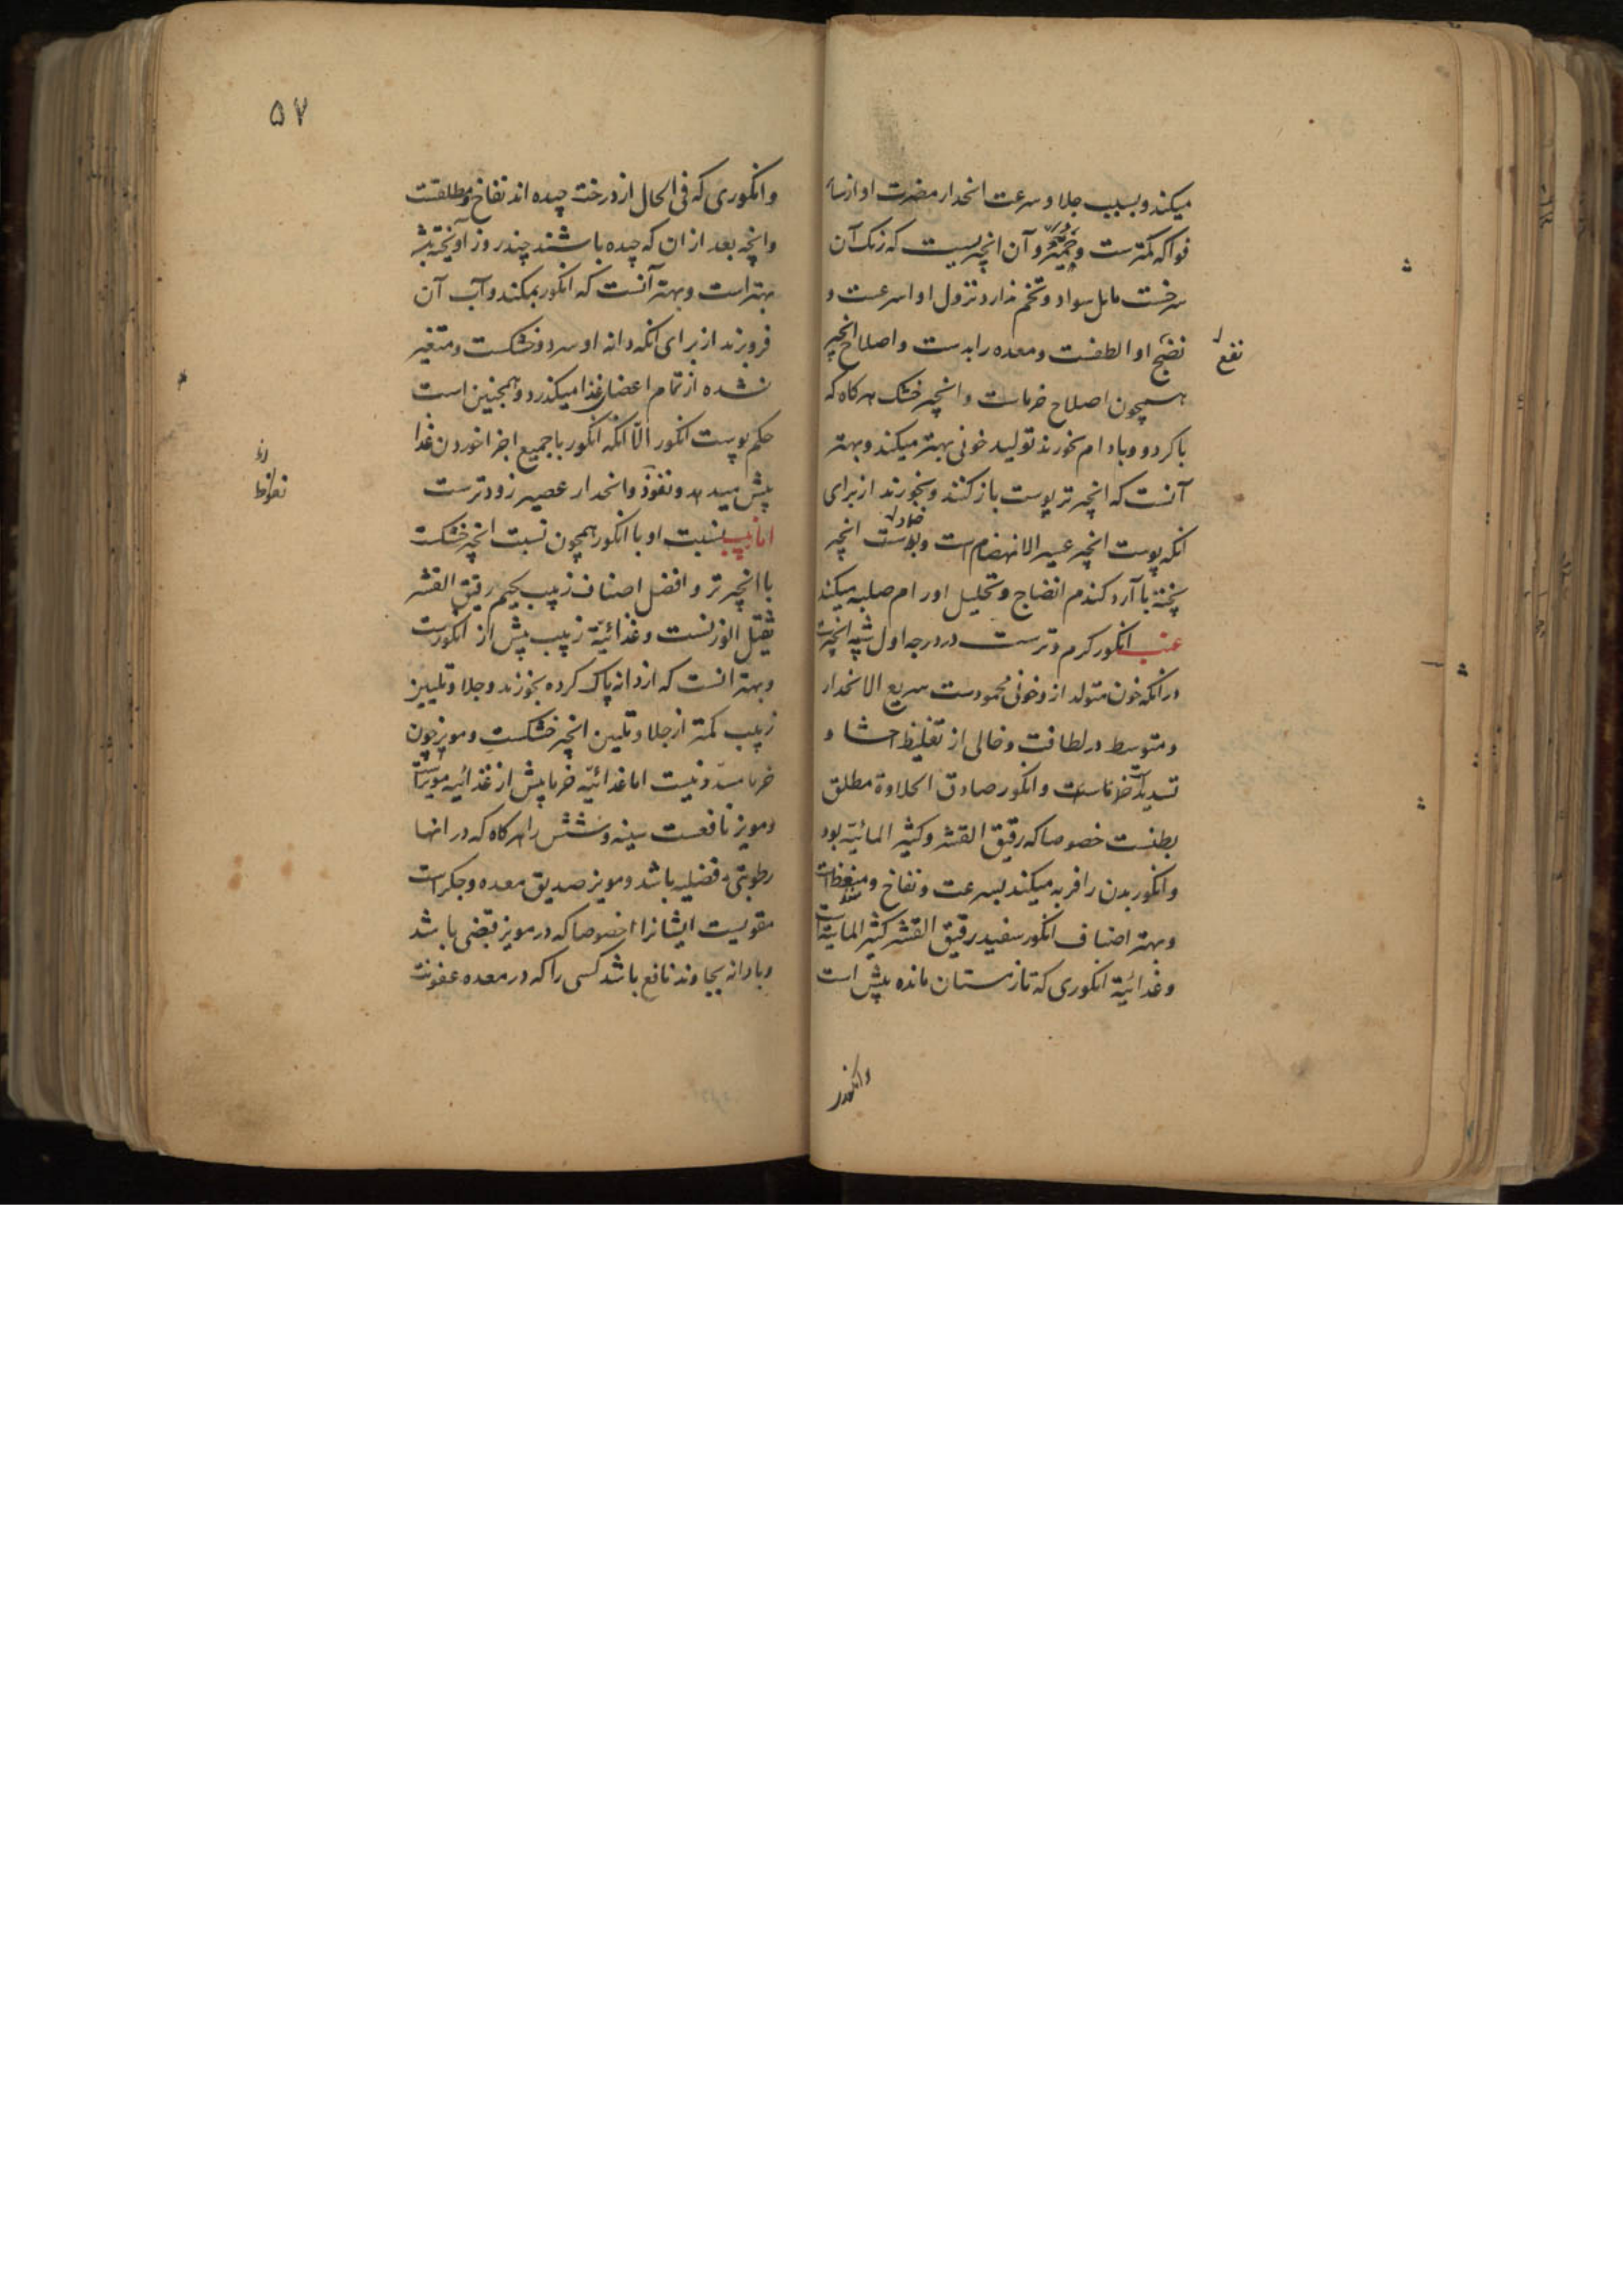 میکند و بسبب جلا و سرعت انحدار مضرت او از سائر
فواکه کمترست و جمیز و آن انجیریست که رنک آن
سرخست مایل بسواد و تخم ندارد نزول او اسرعست و
نضج او الطفست و معده را بدست و اصلاح انجیر
نفع
همچون اصلاح خرماست و انجیر خشک هرکاه که
با کردو و بادام بخورند تولید خونی بهتر میکند و بهتر
آنست که انجیر تر پوست باز کنند و بخورند از برای
انکه پوست انجیر عسیر الانهضام است و پوست انجیر
پخته با آرد کندم انضاج و تحلیل اورام صلبه میکند
عنب انکور کرم و ترست در درجه اول شبیه انجیرست
در انکه خون متولد از و خونی محمودست سریع الانحدار
و متوسط در لطافت و خالی از تغلیظ احشا و
تسدید خرماست و انکور صادق الحلاوة مطلق
بطنست خصوصا که رقیق القشر و کثیر المائیّة بود
و انکور بدن را فربه میکند بسرعت و نفاخ و منعظ است
و بهتر اصناف انکور سفید رقیق القشر کثیر المائیة است
و غذائیّة انکوری که تا زمستان مانده بیش است
وانکور
۵۷
و انکوری که فی الحال از درخت چیده اند نفاخ و مطلقست
و انچه بعد از ان که چیده باشند چند روز آویخته باشد
بهتر است و بهتر آنست که انکور بمکند و آب آن
فرو برند از برای انکه دانه او سرد و خشکست و متغیر
نشده از تمام اعضای غذا میکذرد و همچنین است
حکم پوست انکور الّا انکه انکور با جمیع اجزا خوردن غذا
بیش میدهد و نفوذ و انحدار عصیر زودترست
اما زبیب نسبت او با انکور همچون نسبت انجیر خشکست
با انجیر تر و افضل اصناف زبیب لحیم رقیق القشر
ثقیل الوزنست و غذائیّة زبیب بیش از انکورست
و بهتر انست که از دانه پاک کرده بخورند و جلا و تلیین
زبیب کمتر از جلا و تلیین انجیر خشکست و مویز چون
خرما مسدّد نیست اما غذائیّه خرما بیش از غذائیه مویزست
و مویز نافعست سینه و شش را هرکاه که در انها
رطوبتی فضلیه باشد و مویز صدیق معده و جکر است
مقویست ایشانرا خصوصا که در مویز قبضی باشد
و با دانه بجاوند نافع باشد کسی را که در معده عفونت